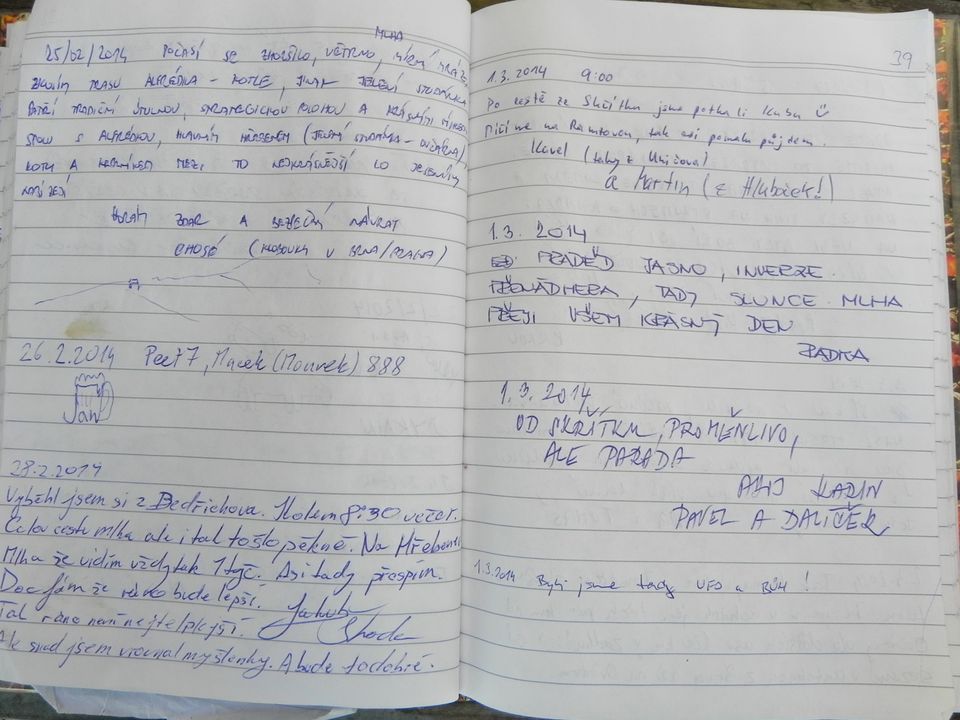 MLHA
25/02/2014 POČASÍ SE ZHORŠILO, VĚTRNO, MÍRNÝ MRÁZ,
TRASU ALFRÉDKA - KOTLE, JINAK JELENÍ STUDÁNKA
PATŘÍ TRADIČNÍ ÚTULNOU, STRATEGICKOU POLOHOU A KRÁSNÝM
SPOLU S ALFRÉDKOU, HLAVNÍM HŘEBENEM (JELENÍ STUDÁNKA - OVČÁRNA)
KOTLY A MEZI TO NEJKRÁSNĚJŠÍ CO JESENÍKY
NABÍZEJÍ
HORÁM ZDAR A BEZPEČNÝ NÁVRAT
(KLOBOUKY U BRNA/PRAHA)
26.2.2014 Peet7, Macek (Mourek) 888
Jan
28.2.2014
Vyběhl jsem si z Bedřichova. Kolem 8:30 večer.
Celou cestu mlha ale i tak to šlo pěkně. Na Hřebeni
Mlha že vidím vždy tak 1 tyč. Asi tady přespím.
Doufám že ráno bude lepší. Jakub
Tak ráno není nejteplejší.
Ale snad jsem vrovnal myšlenky. A bude to dobré.
39
1.3.2014 9:00
Po cestě ze Skřítku jsme potkali Kubu
Míříme na Ramzovou, tak asi pomalu půjdem.
Karel (taky z Uničova)
a Martin (z Hluboček!)
1.3. 2014
PRADĚD JASNO, INVERZE
PŘENÁDHERA, TADY SLUNCE. MLHA
PŘEJI VŠEM KRÁSNÝ DEN
RADKA
1.3. 2014
OD SKŘÍTKU, PROMĚNLIVO,
ALE PARÁDA
AHOJ KARIN
PAVEL A DALÍČEK
1.3.2014 Byli jsme tady UFO a BŮH !